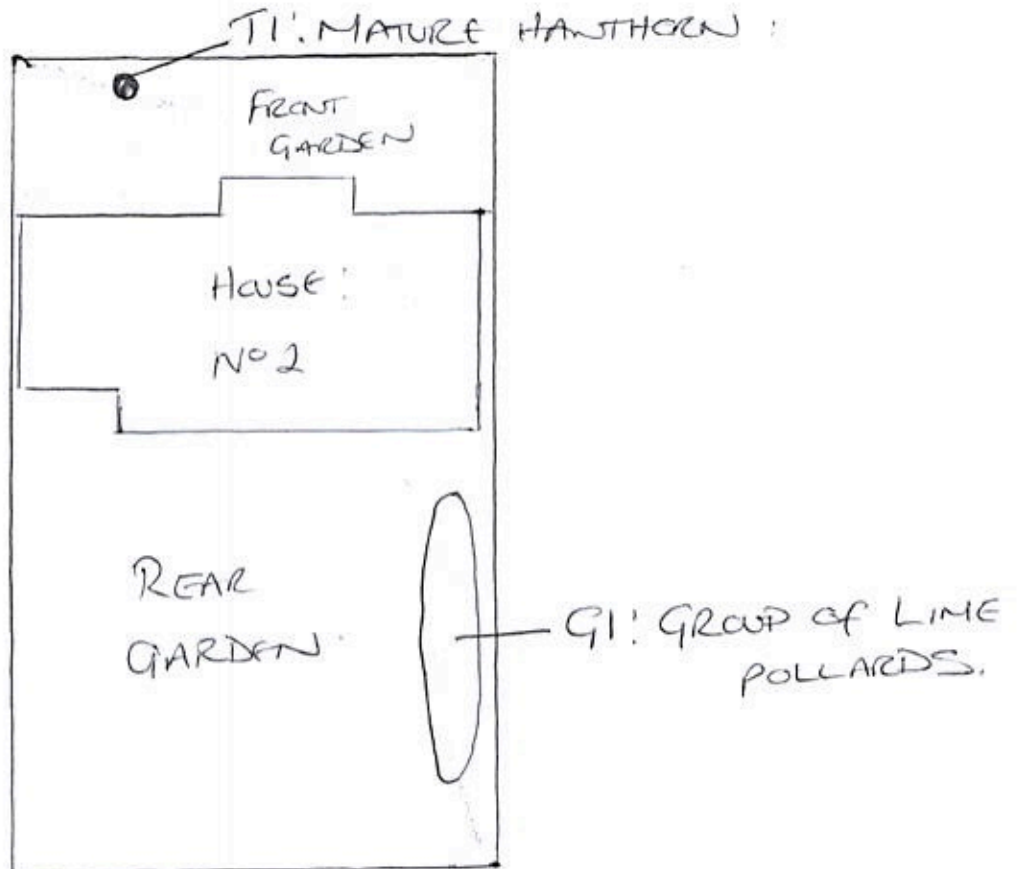 T1: MATURE HAWTHORN:
FRONT
GARDEN
HOUSE:
Nº 2
REAR
GARDEN
G1: GROUP OF LIME
POLLARDS.